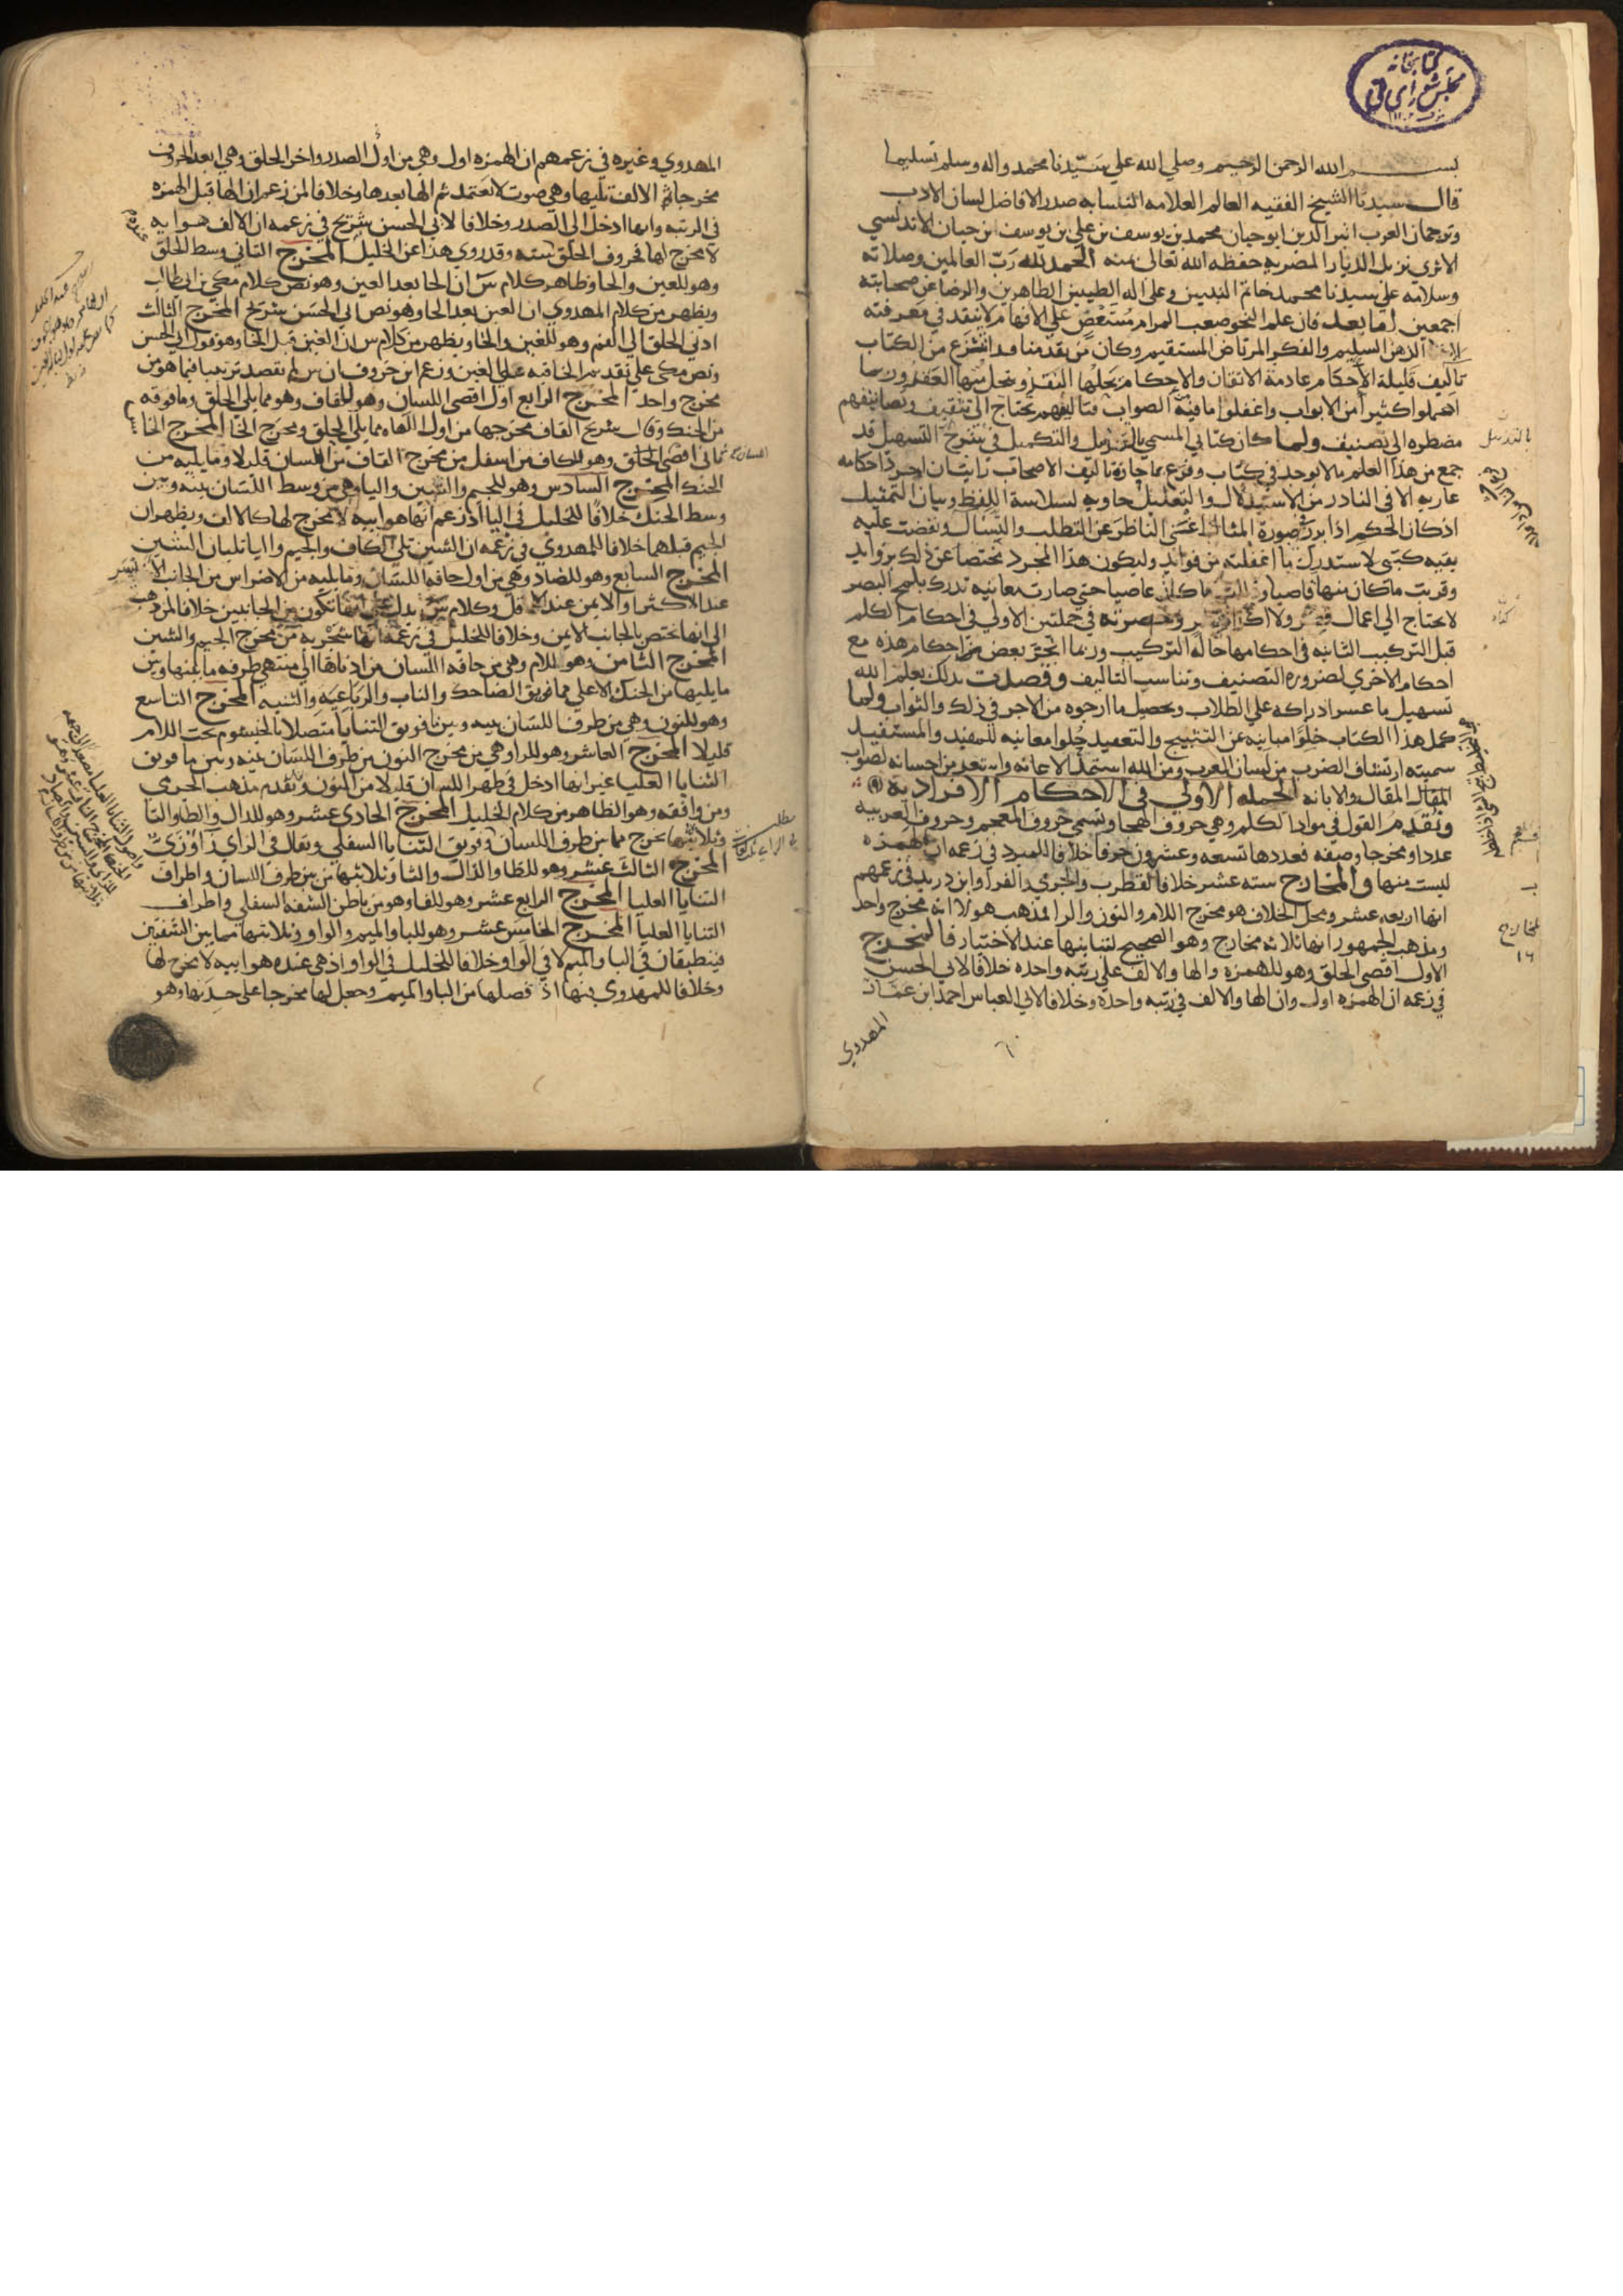 كتابخانه
مجلس شورای ملی
بسم الله الرحمن الرحيم وصلي الله علي سيدنا محمد واله وسلم تسليما
قال سيدنا الشيخ الفقيه العالم العلامه النسابه صدر الافاضل لسان الادب
وترجمان العرب اثير الدين ابو حيان محمد بن يوسف بن علي بن يوسف ابن حيان الاندلسي
الاثري نزيل الديار المصريه حفظه الله تعالى بمنه الحمد لله رب العالمين وصلاته
وسلامه علي سيدنا محمد خاتم النبيين وعلى اله الطيبين الطاهرين والرضا عن صحابته
اجمعين اما بعد فان علم النحو صعب المرام مستعص على الافهام لا ينفد في معرفته
الا الذهن السليم والفكر المرتاض المستقيم وكان من تقدمنا قد انتزع من الكتاب
تاليف قليلة الاحكام عادمة الاتقان والاحكام يحلها النقد وينحل منها العقد وربما
اهملوا كثيرا من الابواب واغفلوا ما فيه الصواب فتاليفهم تحتاج الى تثقيف وتصانيفهم
مضطره الى تصنيف ولما كان كتابي المسمي بالتذييل والتكميل في شرح التسهيل قد
جمع من هذا العلم ما لا يوجد في كتاب وفرع بما حازه تاليف الاصحاب رايت ان اجرد احكامه
عاريه الا في النادر من الاستدلال والتعليل حاويه لسلاسة اللفظ وبيان التمثيل
اذ كان الحكم اذا برز في صورة المثال اغنى الناظر عن التطلب والتسال ونفضت عليه
بقيه كتبي لاستدرك ما اغفلته من فوائد وليكون هذا المجرد مختصا عن ذلك بزوايد
وقربت ما كان منها قاصيا وذللت ما كان عاصيا حتي صارت معانيه تدرك بلمح البصر
لا يحتاج الي اعمال فكر ولا اكداد نظر وحصرته في جملتين الاولي في احكام الكلم
قبل التركيب الثانيه في احكامها حاله التركيب وربما انجر بعض من احكام هذه مع
احكام الاخري لضروره التصنيف وتناسب التاليف وقصدت بذلك يعلم الله
تسهيل ما عسر ادراكه علي الطلاب وتحصيل ما ارجوه من الاجر في ذلك والثواب ولما
كمل هذا الكتاب خلوا مبانيه عن التثبيج والتعقيد حلوا معانيه للمفيد والمستفيد
سميته ارتشاف الضرب من لسان العرب ومن الله استمد الاعانه واستعد من احسانه لصواب
المقال والابانه الجمله الاولي في الاحكام الافراديه
ونقدم القول في مواد الكلم وهي حروف الهجا وتسمي حروف المعجم وحروف العربيه
عددا ومخرجا وصفه فعددها تسعه وعشرون حرفا خلافا للمبرد في زعمه ان الهمزه
ليست منها والمخارج سته عشر خلافا لقطرب والجرمي والفرا وابن دريد في زعمهم
انها اربعه عشر ومحل الخلاف هو مخرج اللام والنون والرا لمذهب هولا انه مخرج واحد
ومذهب الجمهور انها ثلاثه مخارج وهو الصحيح لتباينها عند الاختبار فالمخرج
الاول اقصى الحلق وهو للهمزه والها والالف علي رتبه واحده خلافا لابي الحسن
في زعمه ان الهمزه اول وان الها والالف في رتبه واحده وخلافا لابي العباس احمد ابن عمار
المهدوي
بالتذييل
المخارج
١٦
المهدوي وغيره في زعمهم ان الهمزه اول وهي من اول الصدر واخر الحلق وهي ابعد الحروف
مخرجا ثم الالف تليها وهي صوت لا يعتمد ثم الها بعدها وخلافا لمن زعم ان الها قبل الهمزه
في الرتبه وانها ادخل الى الصدر وخلافا لابى الحسن شريح في زعمه ان الالف هوايه
لا مخرج لها فحروف الحلق سته وقد روي هذا عن الخليل المخرج الثاني وسط الحلق
وهو للعين والحا وظاهر كلام س ان الحا بعد العين وهو نص كلام مكي بن ابي طالب
ويظهر من كلام المهدوي ان العين بعد الحا وهو نص ابي الحسن شريح المخرج الثالث
ادني الحلق الي الفم وهو للغين والخا ويظهر من كلام س ان الغين قبل الخا وهو قول ابي الحسن
ونص مكي علي تقديم الخا قبل الغين وزعم ابن خروف ان س لم يقصد ترتيبا فيما هو من
مخرج واحد المخرج الرابع اول اقصى اللسان وهو للقاف وهو مما يلي الحلق وما فوقه
من الحنك وقال شريح القاف مخرجها من اول اللهاه مما يلي الحلق ومخرج الخا المخرج الخا
ثاني اقصى وهو للكاف من اسفل من مخرج القاف من اللسان قليلا وما يليه من
الحنك المخرج السادس وهو للجيم والشين واليا وهي من وسط اللسان بينه وبين
وسط الحنك خلافا للخليل في اليا اذ زعم انها هوايية لا مخرج لها كالالف ويظهر ان
الجيم قبلهما خلافا للمهدوي في زعمه ان الشين تلي الكاف والجيم واليا يليان الشين
المخرج السابع وهو للضاد وهي من اول حافه اللسان وما يليه من الاضراس من الجانب الايسر
عند الاكثر او الايمن عند الاقل وكلام س يدل علي انها تكون من الجانبين خلافا لمن ذهب
الى انها تختص بالجانب الايمن وخلافا للخليل في زعمه انها شجريه من مخرج الجيم والشين
المخرج الثامن وهو للام وهي من حافه اللسان من ادناها الي منتهى طرفه ما بينها وبين
ما يليها من الحنك الاعلي مما فويق الضاحك والناب والرباعيه والثنيه المخرج التاسع
وهو للنون وهي من طرف اللسان بينه وبين ما فويق الثنايا متصلا بالخيشوم تحت اللام
قليلا المخرج العاشر وهو للرا وهي من مخرج النون من طرف اللسان بينه وبين ما فويق
الثنايا العليا غير انها ادخل في ظهر اللسان قليلا من النون وتقدم مذهب الجرمي
ومن وافقه وهو الظاهر من كلام الخليل المخرج الحادي عشر وهو للدال والطا والتا
وثلاثتها تخرج مما بين طرف اللسان وفويق الثنايا السفلي ويقال في الزاي زا وزي
المخرج الثالث عشر وهو للظا والذال والثا وثلاثتها من بين طرف اللسان واطراف
الثنايا العليا المخرج الرابع عشر وهو للفا وهو من باطن الشفه السفلي واطراف
الثنايا العليا المخرج الخامس عشر وهو للبا والميم والواو وثلاثتها مما بين الشفتين
فينطبقان في البا والميم لا في الواو خلافا للخليل في الواو اذ هي عنده هوايية لا مخرج لها
وخلافا للمهدوي بينها اذ فصلها من البا والميم وجعل لها مخرجا على حدتها وهو